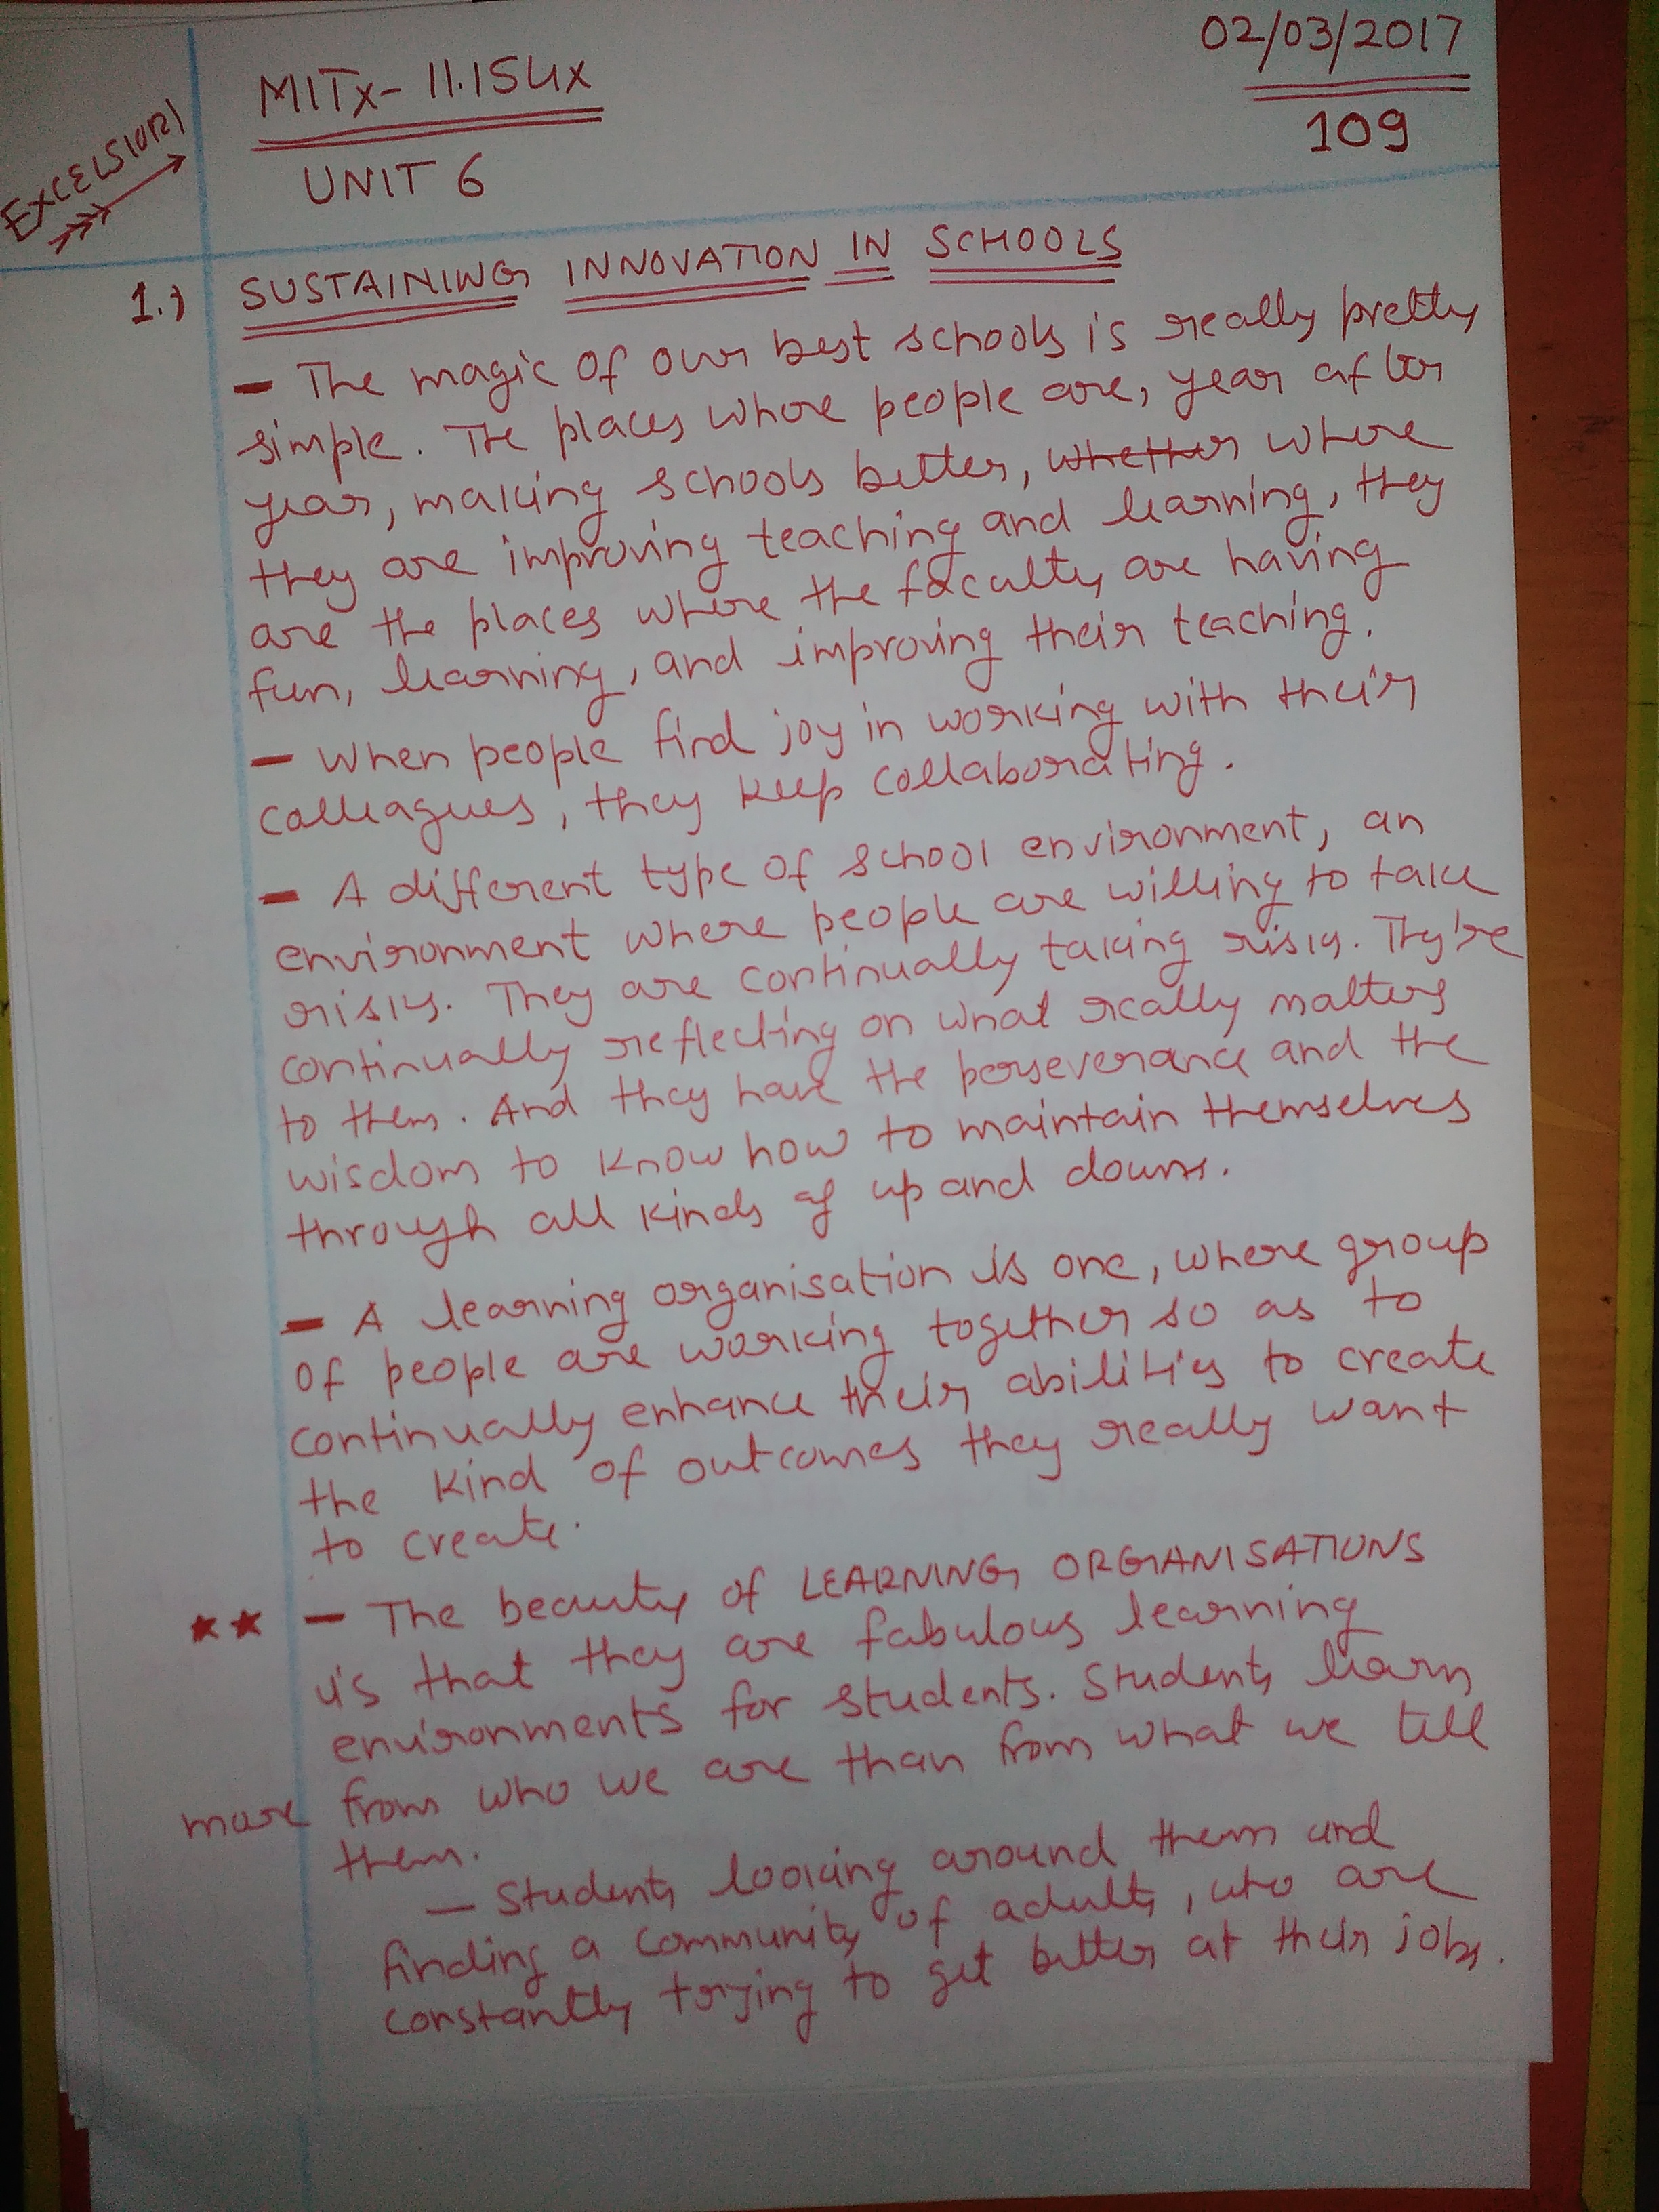 02/03/2017
MITx- 11.154x
109
EXCELSIOR!
UNIT 6
1.) SUSTAINING INNOVATION IN SCHOOLS
- The magic of our best schools is really pretty
simple. The places where people are, year after
year, making schools better, whether where
they are improving teaching and learning, they
are the places where the faculty are having
fun, learning, and improving their teaching.
- When people find joy in working with their
colleagues, they keep collaborating.
- A different type of school environment, an
environment where people are willing to take
risks. They are continually taking risks. They're
continually reflecting on what really matters
to them. And they have the perseverance and the
wisdom to know how to maintain themselves
through all kinds of up and downs.
- A learning organisation is one, where group
of people are working together so as to
continually enhance their abilities to create
the kind of outcomes they really want
to create.
★★ - The beauty of LEARNING ORGANISATIONS
is that they are fabulous learning
environments for students. Students learn
more from who we are than from what we tell
them.
- Students looking around them and
finding a community of adults, who are
constantly trying to get better at their jobs.